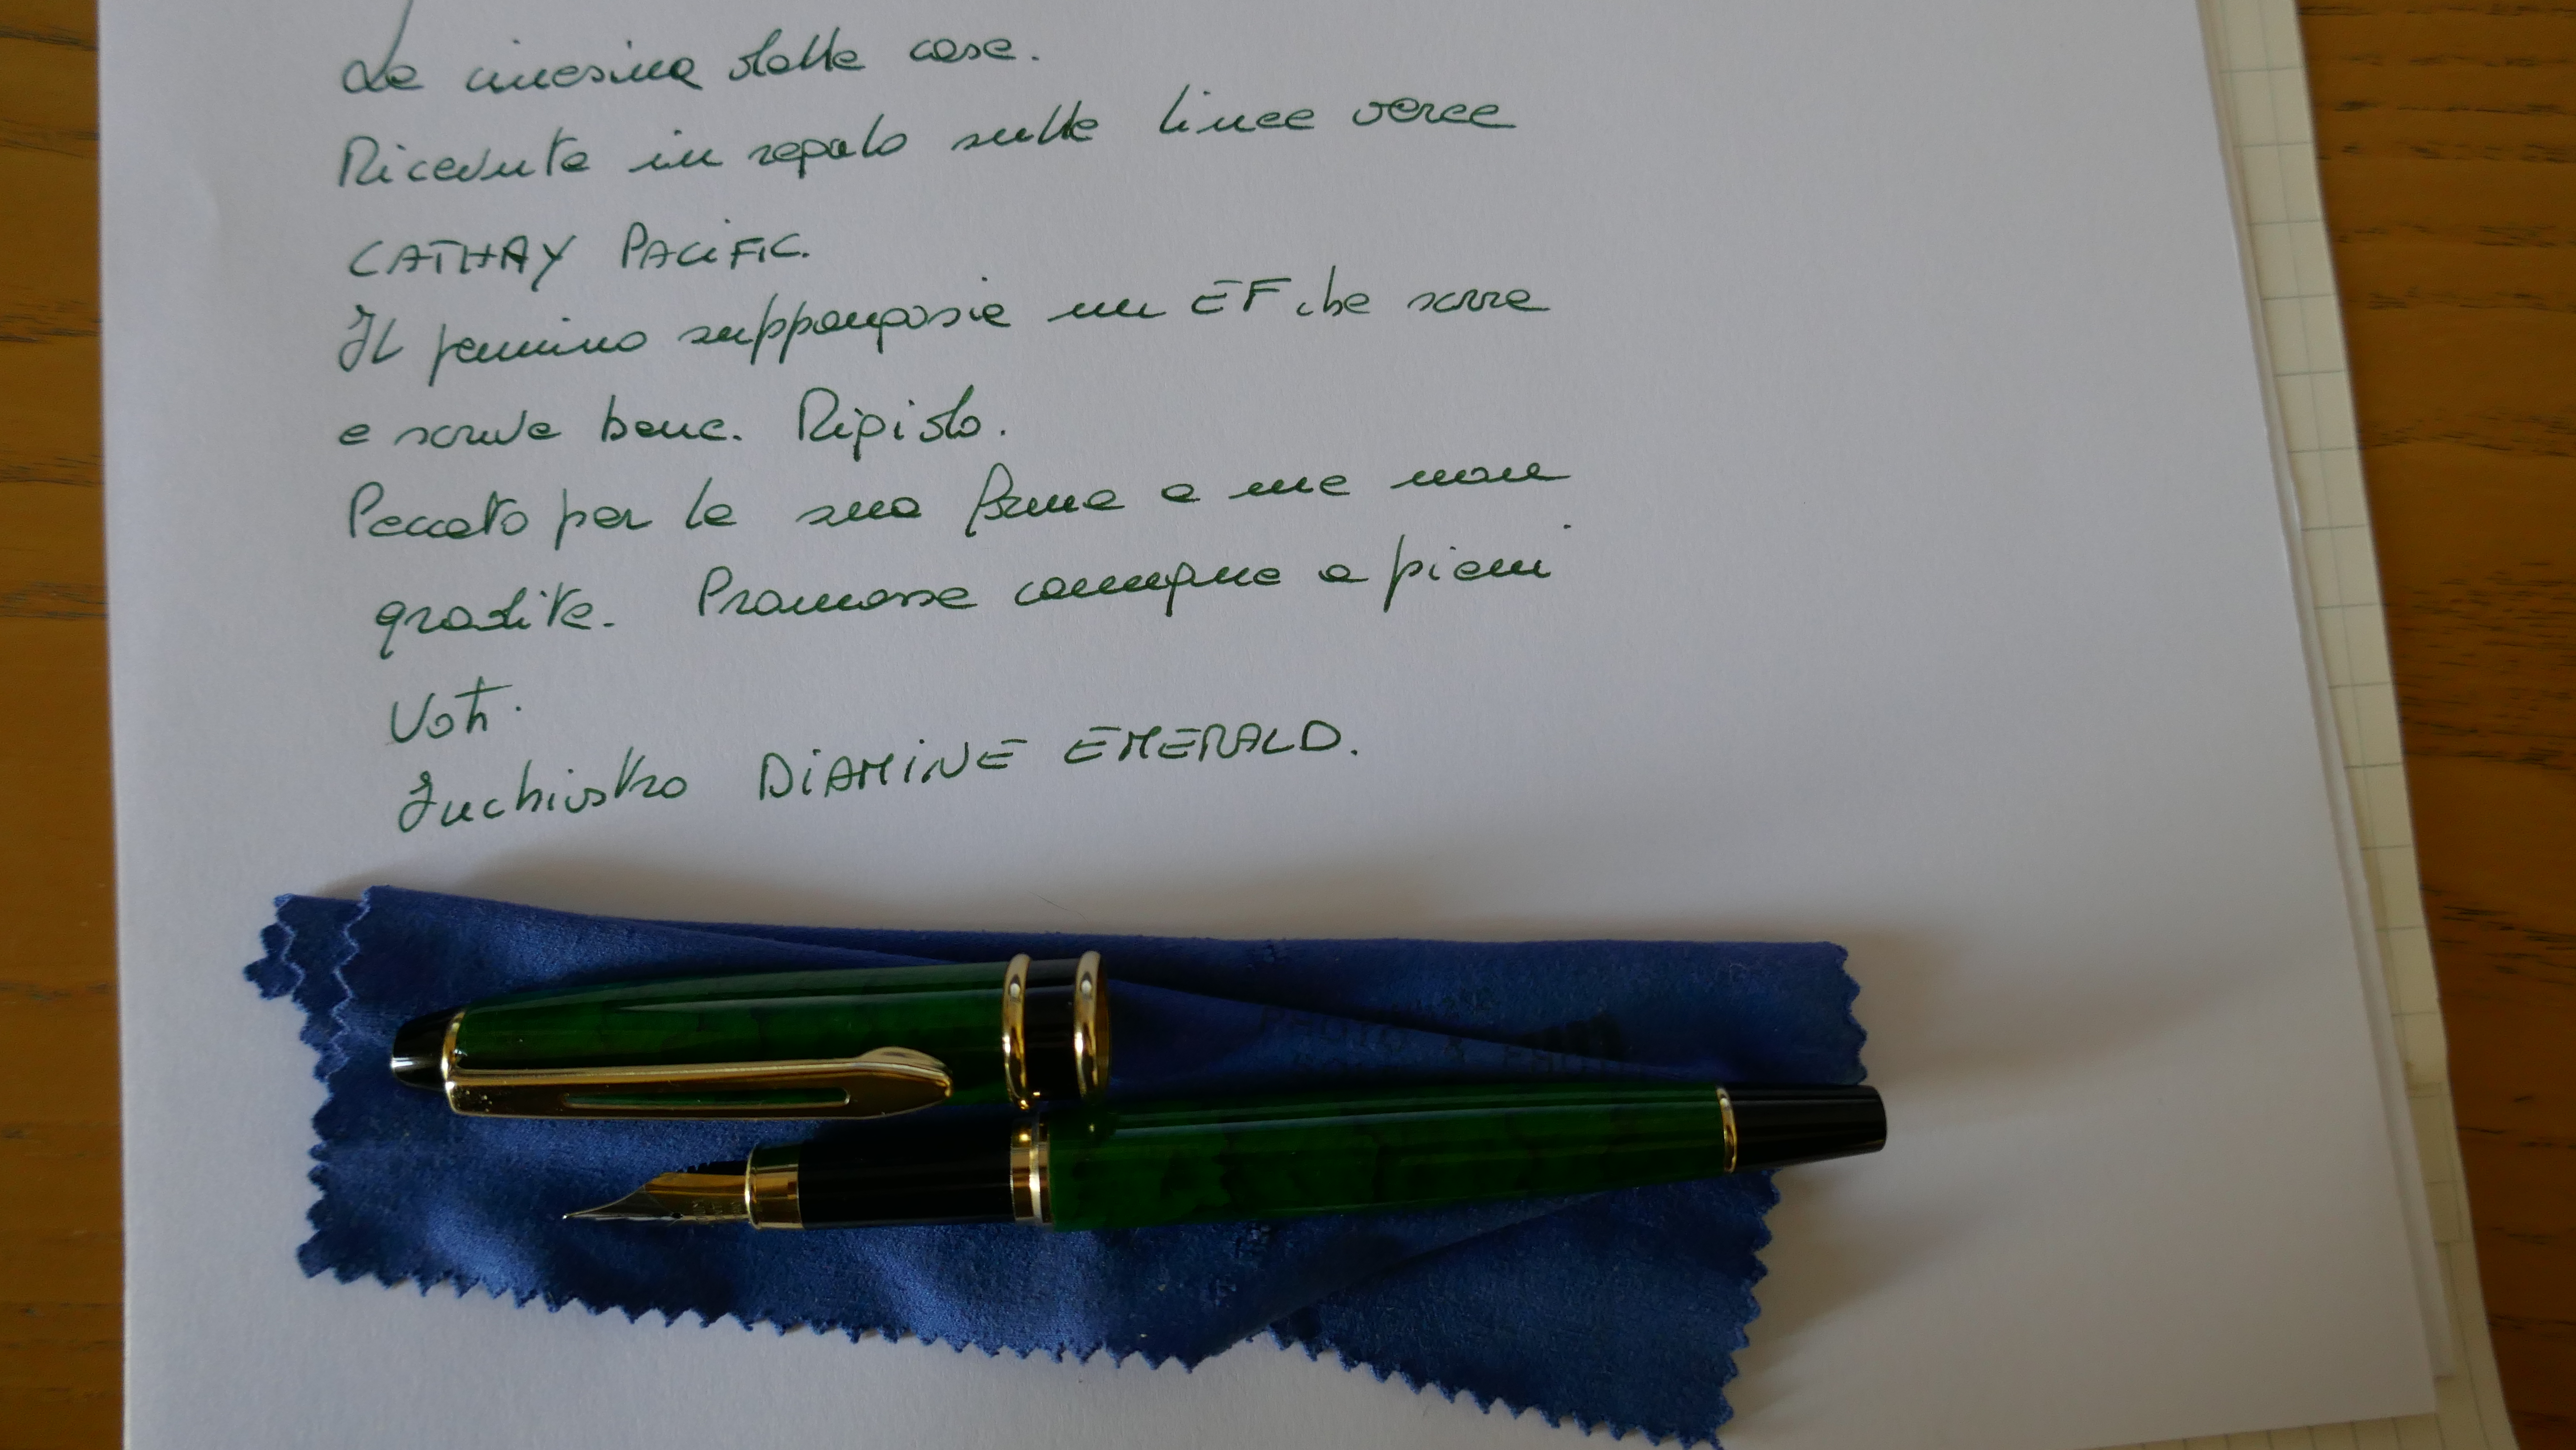 La cinesina della casa.
Ricevuta in regalo sulle linee aeree
CATHAY PACIFIC.
Il pennino suppongosia un EF che scorre
e scrive bene. Rigido.
Peccato per la sua forma a me non
gradita. Promossa comunque a pieni
Voti.
Inchiostro DIAMINE EMERALD.